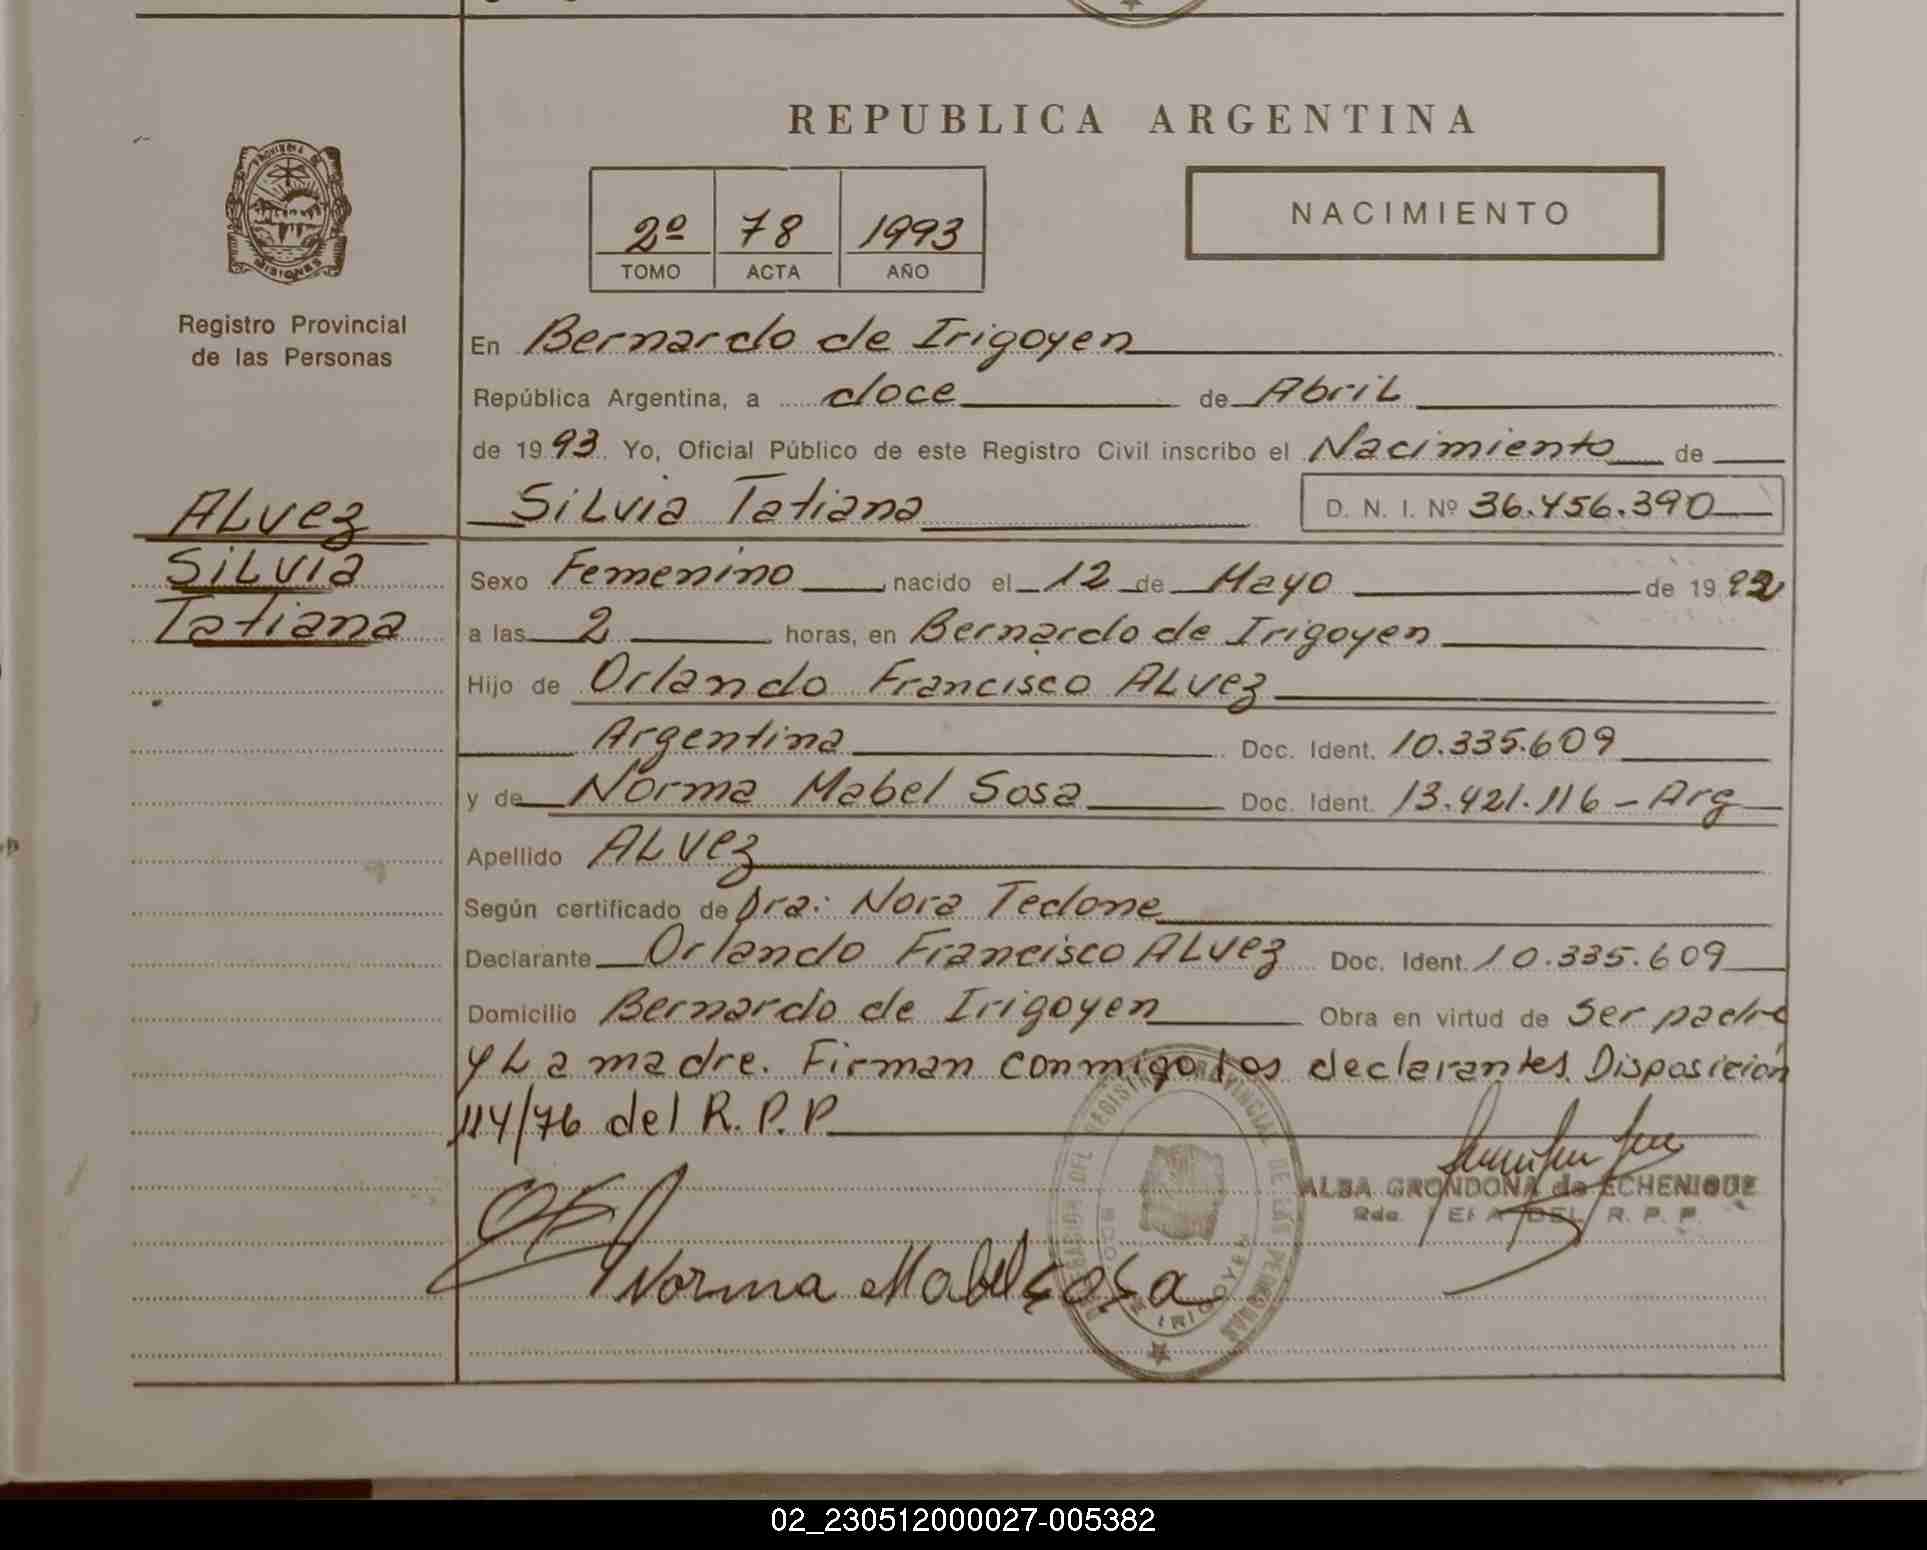 REPUBLICA ARGENTINA
PROVINCIA DE MISIONES
2º 78 1993
TOMO ACTA AÑO
NACIMIENTO
Registro Provincial
de las Personas
En Bernardo de Irigoyen
República Argentina, a doce de Abril
de 1993. Yo, Oficial Público de este Registro Civil inscribo el Nacimiento de
Silvia Tatiana D. N. I. Nº 36.456.390
ALvez
SiLvia
Tatiana
Sexo Femenino nacido el 12 de Mayo de 1992
a las 2 horas, en Bernardo de Irigoyen
Hijo de Orlando Francisco ALvez
Argentina Doc. Ident. 10.335.609
y de Norma Mabel Sosa Doc. Ident. 13.421.116 - Arg
Apellido ALvez
Según certificado de Dra: Nora Tedone
Declarante Orlando Francisco ALvez Doc. Ident. 10.335.609
Domicilio Bernardo de Irigoyen Obra en virtud de ser padre
y La madre. Firman conmigo los declarantes. Disposición
114/76 del R.P.P
DELEGACION DEL REGISTRO PROVINCIAL DE LAS PERSONAS
IRIGOYEN
ALBA GRONDONA de ECHENIQUE
JEFA DEL R. P. P.
Norma Mabel Sosa
02_230512000027-005382